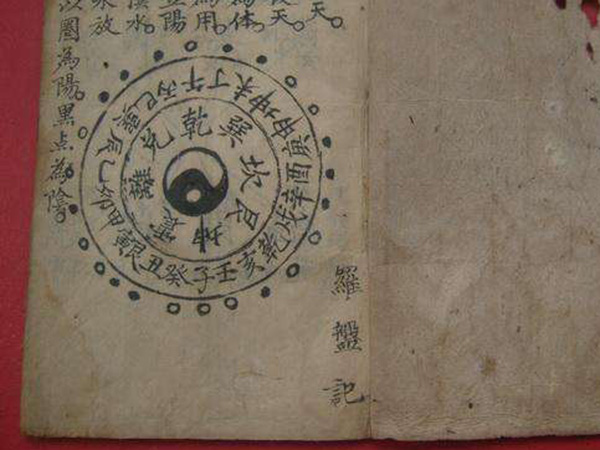 天。
天。
為体。
為用。
陽
水。
放
以圈為陽。黑点為陰。
乾巽坎艮坤震離兌
壬子癸丑艮寅甲卯乙辰巽巳丙午丁未坤申庚酉辛戌乾亥
羅盤記